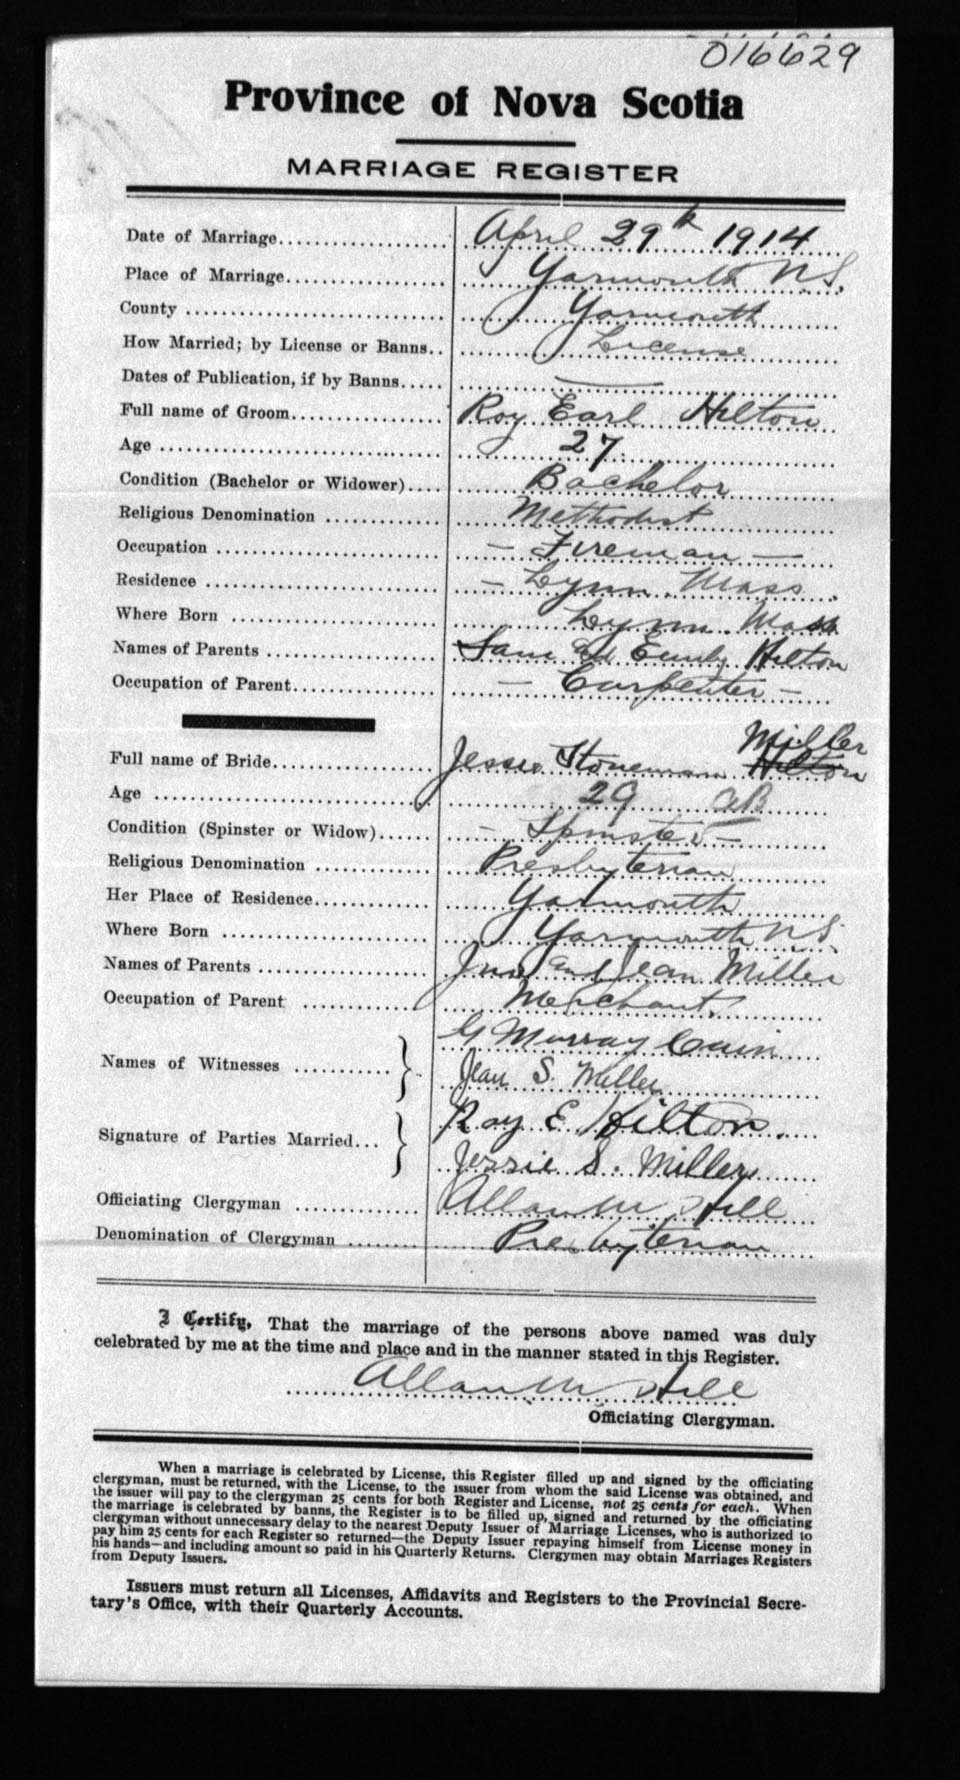 016629
Province of Nova Scotia
MARRIAGE REGISTER
Date of Marriage April 29th 1914
Place of Marriage Yarmouth N.S.
County Yarmouth
How Married; by License or Banns License
Dates of Publication, if by Banns
Full name of Groom Roy Earl Hilton
Age 27
Condition (Bachelor or Widower) Bachelor
Religious Denomination Methodist
Occupation - Fireman -
Residence - Lynn. Mass.
Where Born Lynn. Mass
Names of Parents Sam and Emily Hilton
Occupation of Parent - Carpenter -
Miller
Full name of Bride Jessie Stoneman Hilton
Age 29
Condition (Spinster or Widow) - Spinster -
Religious Denomination Presbyterian
Her Place of Residence Yarmouth
Where Born Yarmouth N.S.
Names of Parents Jno and Jean Miller
Occupation of Parent Merchant
Names of Witnesses G Murray Cain
Jean S. Miller
Signature of Parties Married Roy E Hilton.
Jessie S. Miller
Officiating Clergyman Allan M Hill
Denomination of Clergyman Presbyterian
I Certify, That the marriage of the persons above named was duly
celebrated by me at the time and place and in the manner stated in this Register.
Allan M Hill
Officiating Clergyman.
When a marriage is celebrated by License, this Register filled up and signed by the officiating
clergyman, must be returned, with the License, to the issuer from whom the said License was obtained, and
the issuer will pay to the clergyman 25 cents for both Register and License, not 25 cents for each. When
the marriage is celebrated by banns, the Register is to be filled up, signed and returned by the officiating
clergyman without unnecessary delay to the nearest Deputy Issuer of Marriage Licenses, who is authorized to
pay him 25 cents for each Register so returned—the Deputy Issuer repaying himself from License money in
his hands—and including amount so paid in his Quarterly Returns. Clergymen may obtain Marriages Registers
from Deputy Issuers.
Issuers must return all Licenses, Affidavits and Registers to the Provincial Secre-
tary's Office, with their Quarterly Accounts.